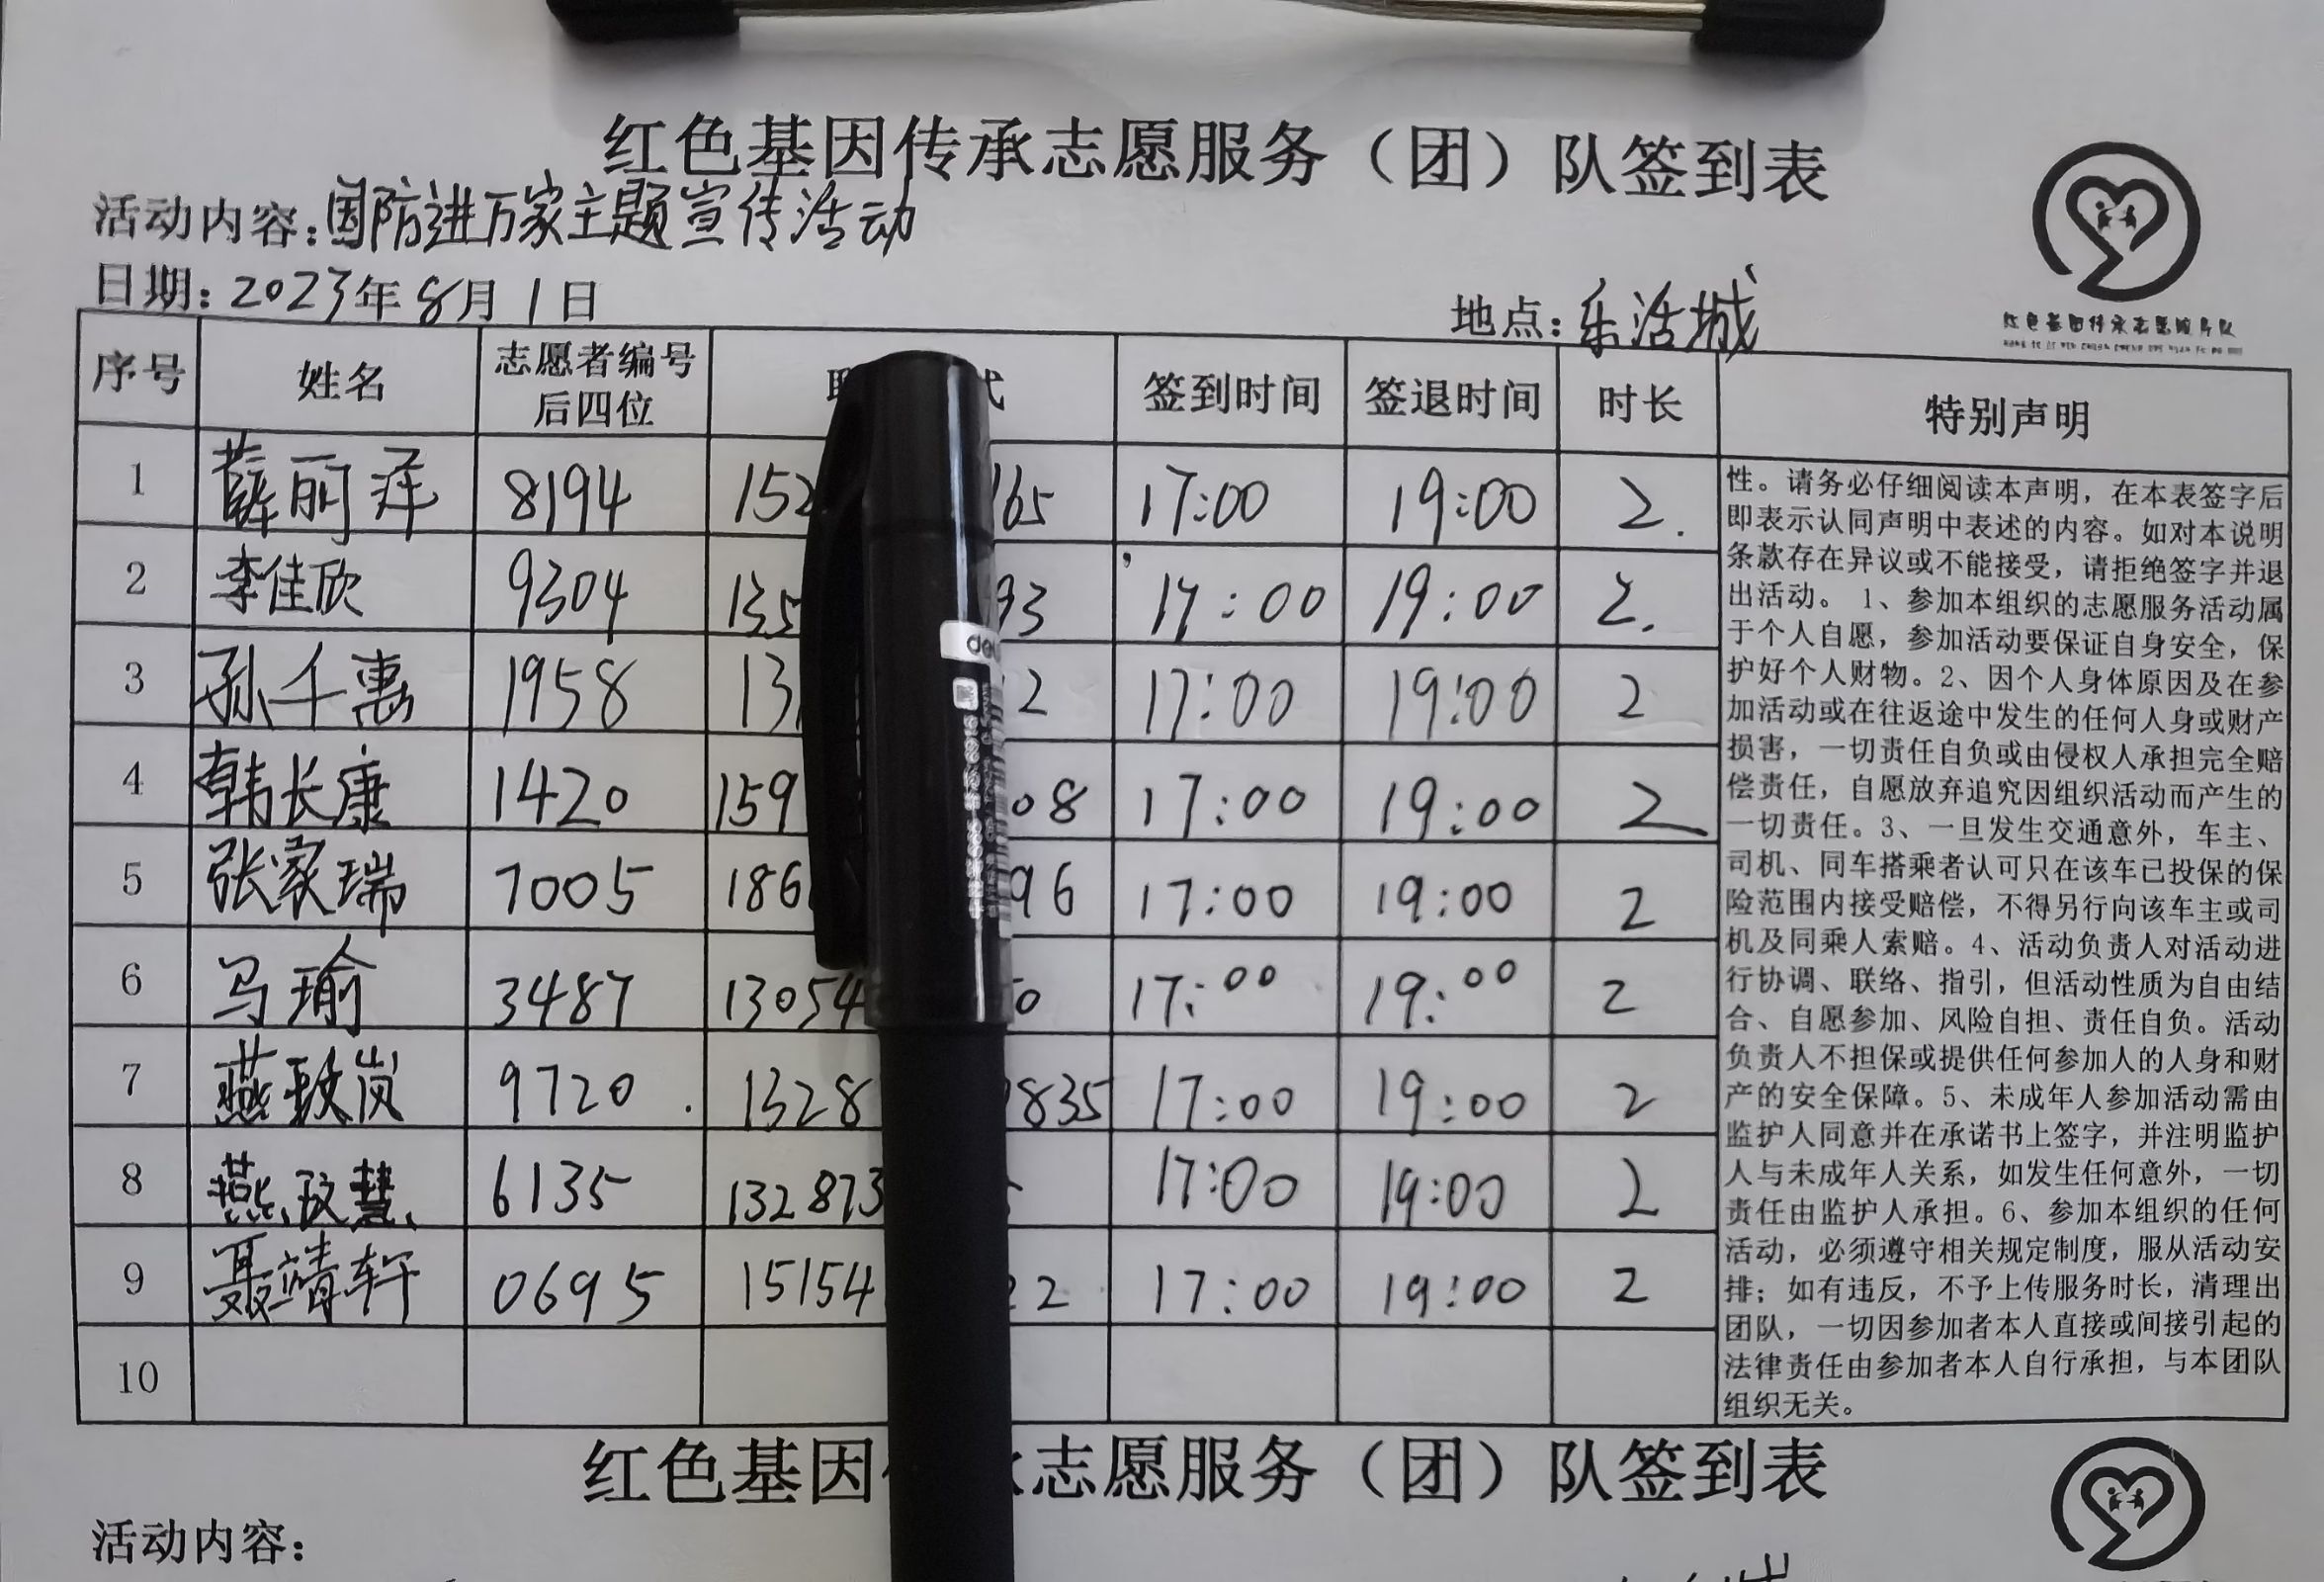 红色基因传承志愿服务（团）队签到表
活动内容：国防进万家主题宣传活动
日期：2023年8月1日
地点：乐活城
红色基因传承志愿服务队
序号 姓名 志愿者编号后四位 签到时间 签退时间 时长 特别声明
1 薛丽萍 8194 152 165 17:00 19:00 2.
2 李佳欣 9304 135 93 17:00 19:00 2.
3 孙千惠 1958 13 2 17:00 19:00 2
4 韩长康 1420 159 08 17:00 19:00 2
5 张家瑞 7005 186 96 17:00 19:00 2
6 马瑜 3487 13054 0 17:00 19:00 2
7 燕致岚 9720 1328 835 17:00 19:00 2
8 燕玟慧 6135 132873 17:00 19:00 2
9 聂靖轩 0695 15154 22 17:00 19:00 2
10
性。请务必仔细阅读本声明，在本表签字后
即表示认同声明中表述的内容。如对本说明
条款存在异议或不能接受，请拒绝签字并退
出活动。1、参加本组织的志愿服务活动属
于个人自愿，参加活动要保证自身安全，保
护好个人财物。2、因个人身体原因及在参
加活动或在往返途中发生的任何人身或财产
损害，一切责任自负或由侵权人承担完全赔
偿责任，自愿放弃追究因组织活动而产生的
一切责任。3、一旦发生交通意外，车主、
司机、同车搭乘者认可只在该车已投保的保
险范围内接受赔偿，不得另行向该车主或司
机及同乘人索赔。4、活动负责人对活动进
行协调、联络、指引，但活动性质为自由结
合、自愿参加、风险自担、责任自负。活动
负责人不担保或提供任何参加人的人身和财
产的安全保障。5、未成年人参加活动需由
监护人同意并在承诺书上签字，并注明监护
人与未成年人关系，如发生任何意外，一切
责任由监护人承担。6、参加本组织的任何
活动，必须遵守相关规定制度，服从活动安
排；如有违反，不予上传服务时长，清理出
团队，一切因参加者本人直接或间接引起的
法律责任由参加者本人自行承担，与本团队
组织无关。
红色基因 志愿服务（团）队签到表
活动内容：